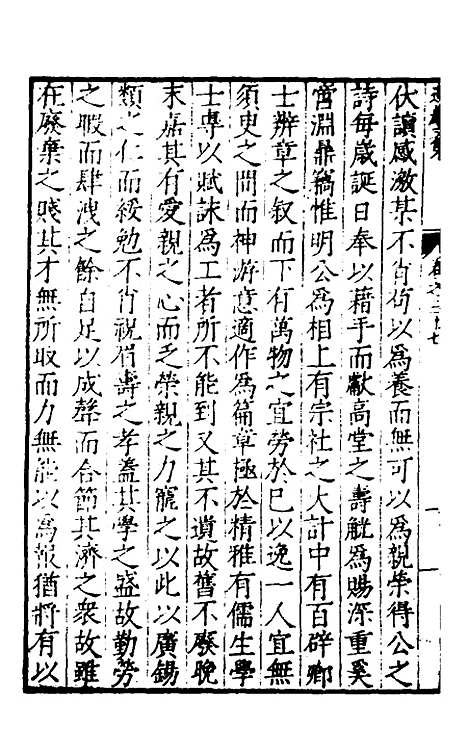 伏讀感激某不肖仰以爲養而無可以爲親榮得公之
詩每歲誕日奉以藉手而獻高堂之壽觥爲賜深重奚
啻淵鼎竊惟明公爲相上有宗社之大計中有百辟卿
士辨章之叙而下有萬物之宜勞於已以逸一人宜無
須史之間而神游意適作爲篇章極於精雅有儒生學
士專以賦詠爲工者所不能到又其不遺故舊不廢晚
末嘉其有愛親之心而乏榮親之力寵之以此以廣錫
類之仁而綏勉不肖祝眉壽之孝蓋其學之盛故勤勞
之暇而肆洩之餘自足以成聲而合節其濟之衆故雖
在廢棄之賤其才無所收而力無能以爲報猶將有以